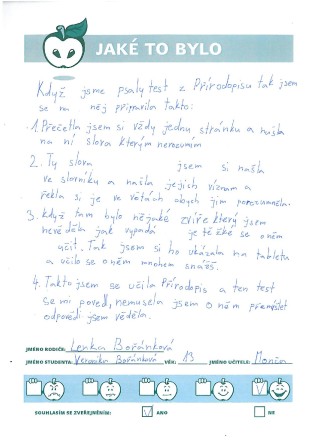 JAKÉ TO BYLO
Když jsme psaly test z Přírodopisu tak jsem
se na něj připravila takto:
1. Přečetla jsem si vždy jednu stránku a našla
na ní slova kterým nerozumím
2. Ty slova jsem si našla
ve slovníku a našla jejich význam a
řekla si je ve větách abych jim porozuměla.
3. když tam bylo nějaké zvíře který jsem
nevěděla jak vypadá je těžké se o něm
učit. Tak jsem si ho ukázala na tabletu
a učilo se o něm mnohem snáš.
4. Takto jsem se učila Přírodopis a ten test
se mi poved, nemusela jsem o něm přemýšlet
odpovědi jsem věděla.
JMÉNO RODIČE: Lenka Bořánková
JMÉNO STUDENTA: Veronika Bořánková VĚK: 13 JMÉNO UČITELE: Monča
SOUHLASÍM SE ZVEŘEJNĚNÍM: ANO NE